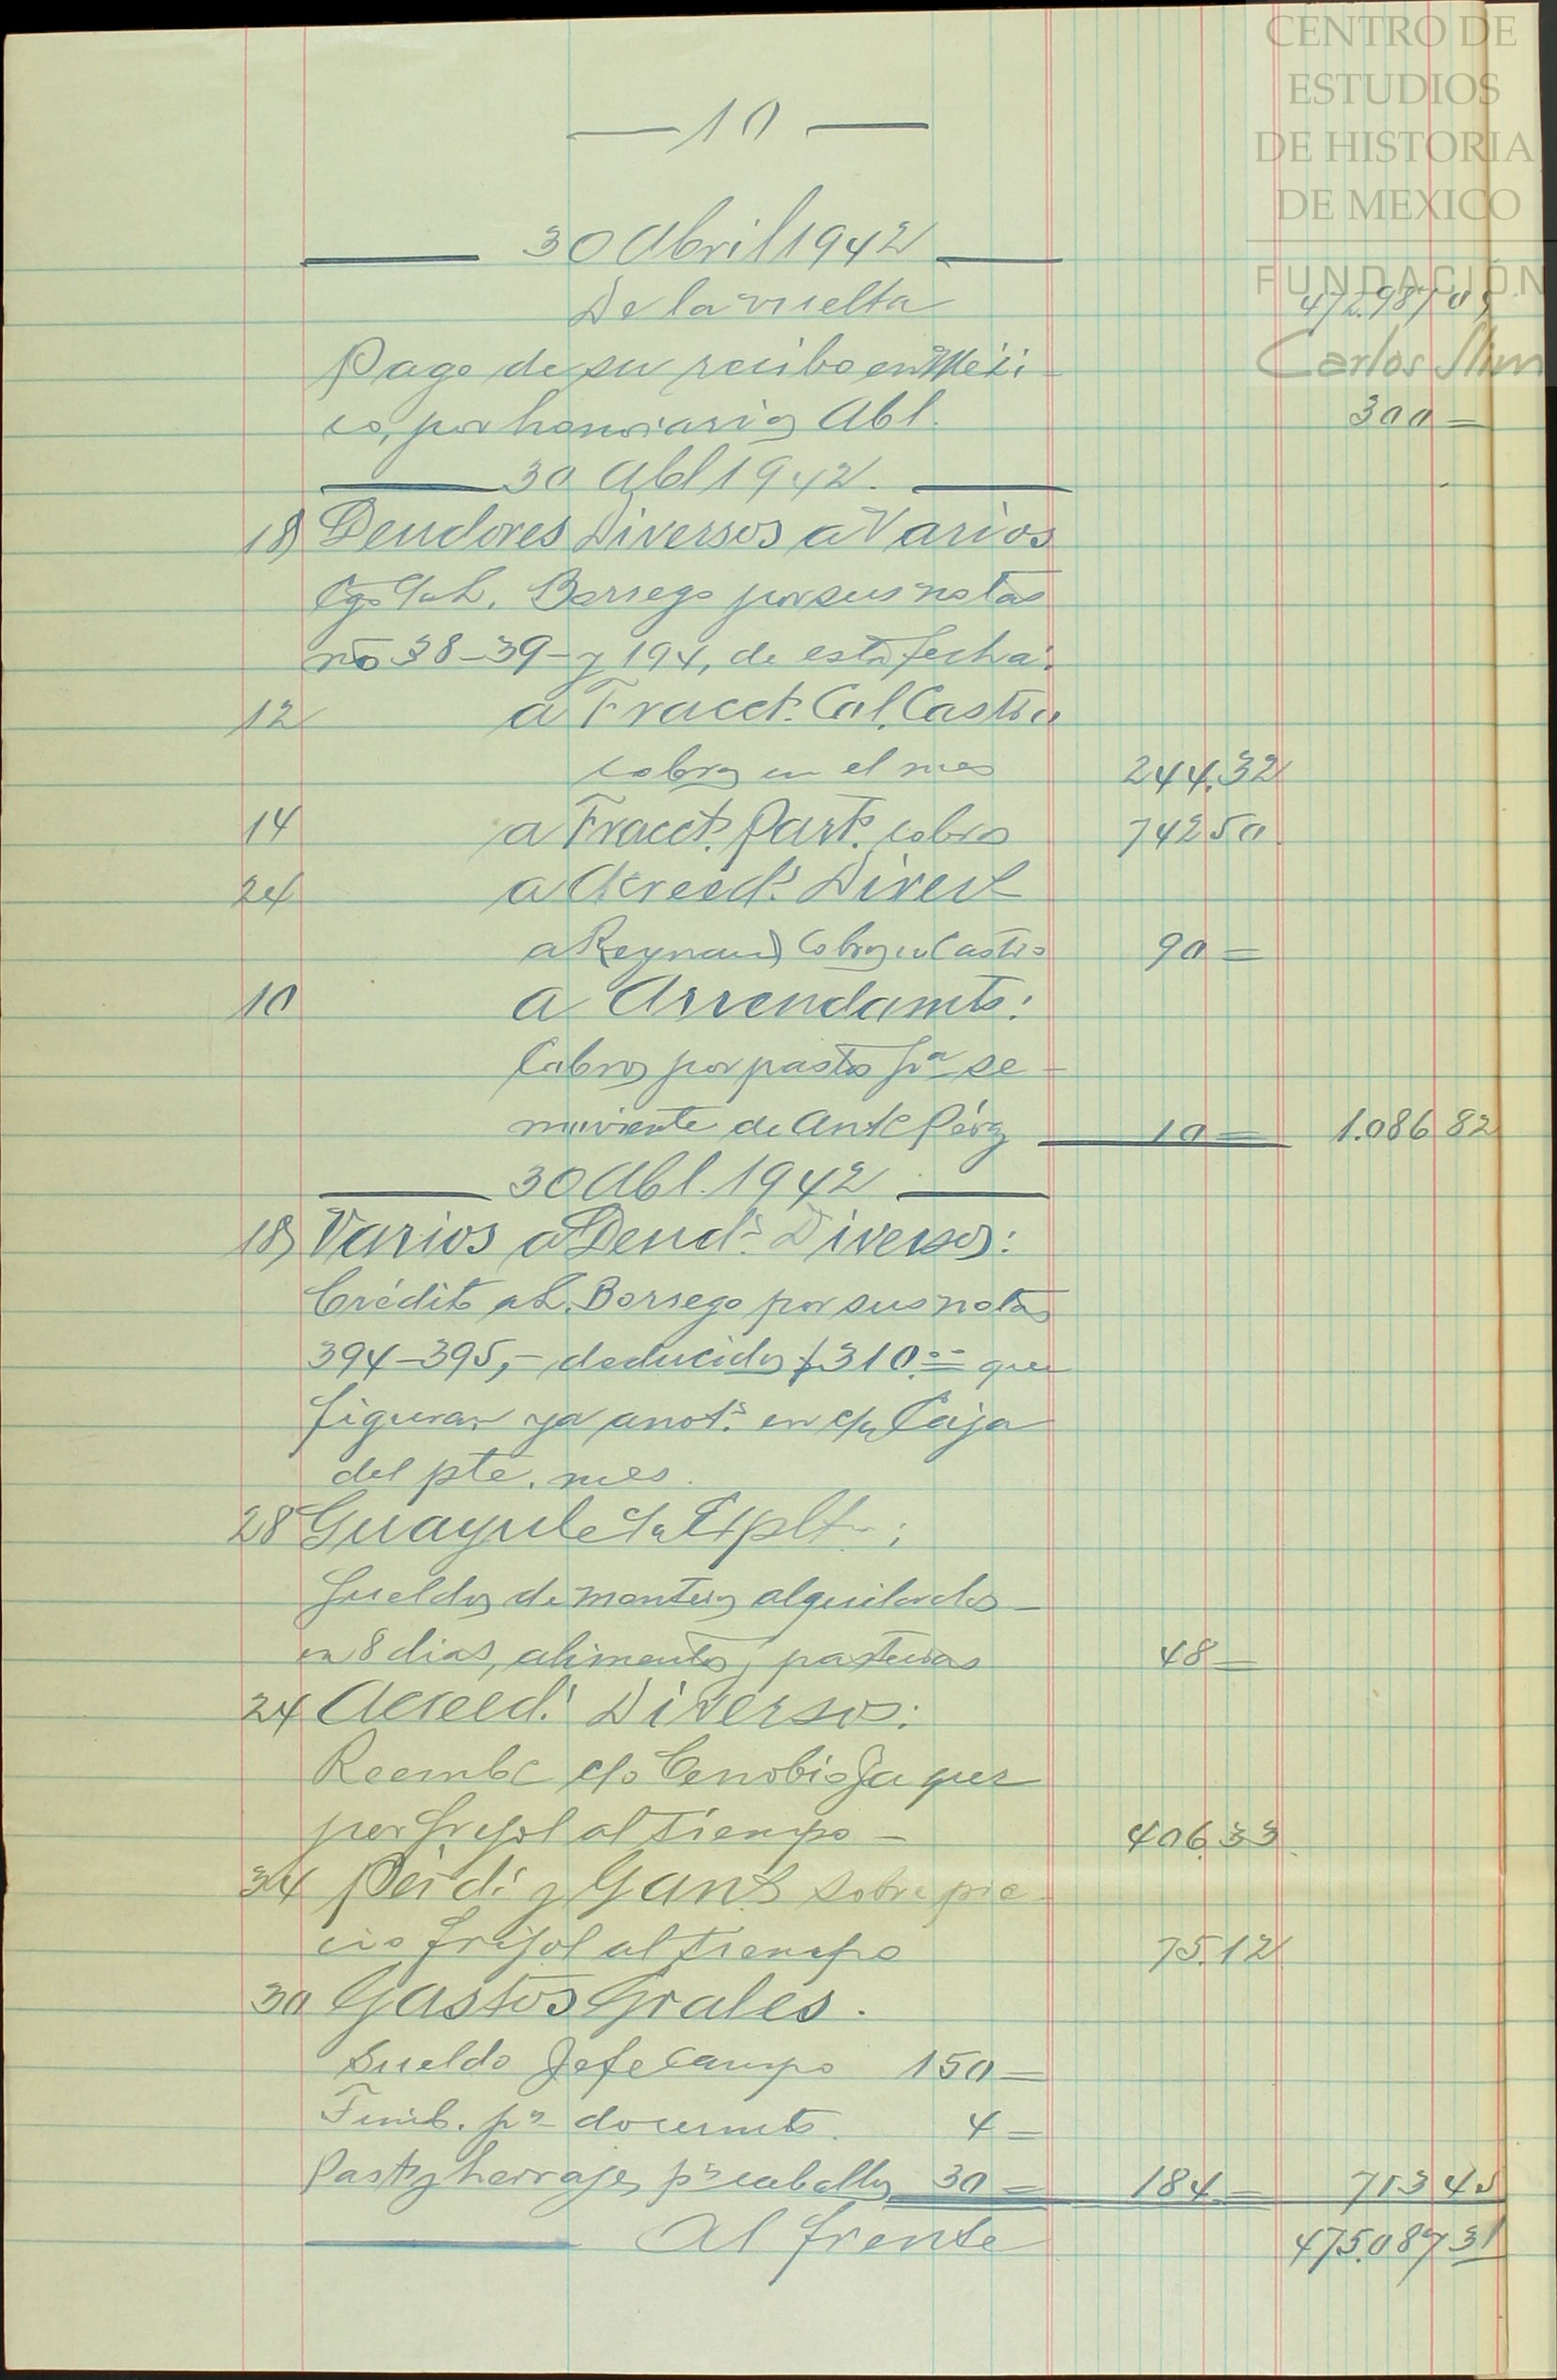 CENTRO DE
ESTUDIOS
DE HISTORIA
DE MEXICO
FUNDACIÓN
Carlos Slim
— 10 —
30 Abril 1942
De la vuelta 472.987 04
Pago de su recibo en Méxi-
co, por honorarios Abl. 300 =
30 Abl 1942.
18 Deudores Diversos a Varios
Cgo L. Borrego por sus notas
no 38-39- y 194, de esta fecha:
12 a Fracct. Cal. Castro
cobros en el mes 244.32
14 a Fracct. Part. cobros 742 50
24 a Acreeds. Divers
a Reynaud Cobros en Castro 90 =
10 a Arrendamto:
Cobros por pastos pa se-
moviente de Anto Pérez 10 = 1.086 82
30 Abl. 1942
18 Varios a Deuds. Diversos:
Crédito a L. Borrego por sus notas
394-395,- deducidos $310.= que
figuran ya anots. en c/ Caja
del pte. mes.
28 Guayule Cta Explt:
Sueldos de monteros alquilados-
en 8 dias, alimentos, pasturas 48 =
24 Acreed. Diversos:
Reembc c/o Cenobio Jaquez
por frijol al tiempo - 406.33
34 Pérd. y Gans sobre pre-
cio frijol al tiempo 75.12
30 Gastos Grales.
Sueldo Jefe Campo 150 =
Timb. pa documts. 4 =
Past y herrajes pa caballos 30 = 184 = 713 45
Al frente 475.087 31